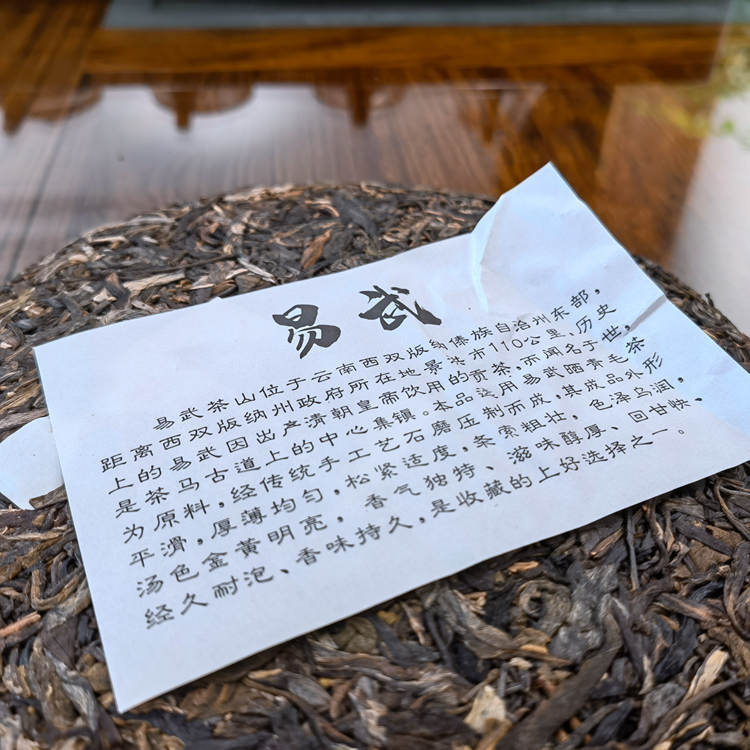 易武
易武茶山位于云南西双版纳傣族自治州东部，
距离西双版纳州政府所在地景洪市110公里，历史
上的易武因出产清朝皇帝饮用的贡茶，而闻名于世，
是茶马古道上的中心集镇。本品选用易武晒青毛茶
为原料，经传统手工艺石磨压制而成，其成品外形
平滑，厚薄均匀，松紧适度，条索粗壮，色泽乌润，
汤色金黄明亮，香气独特、滋味醇厚、回甘快、
经久耐泡、香味持久，是收藏的上好选择之一。